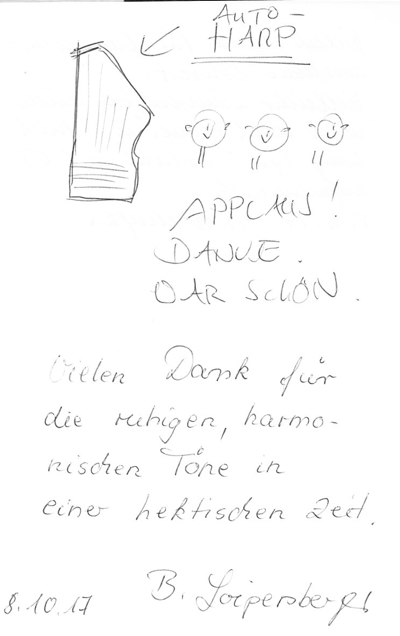 AUTO-
HARP
APPLAUS!
DANKE.
WAR SCHÖN.
Vielen Dank für
die ruhigen, harmo-
nischen Töne in
einer hektischen Zeit.
B. Loipersberger
8.10.17